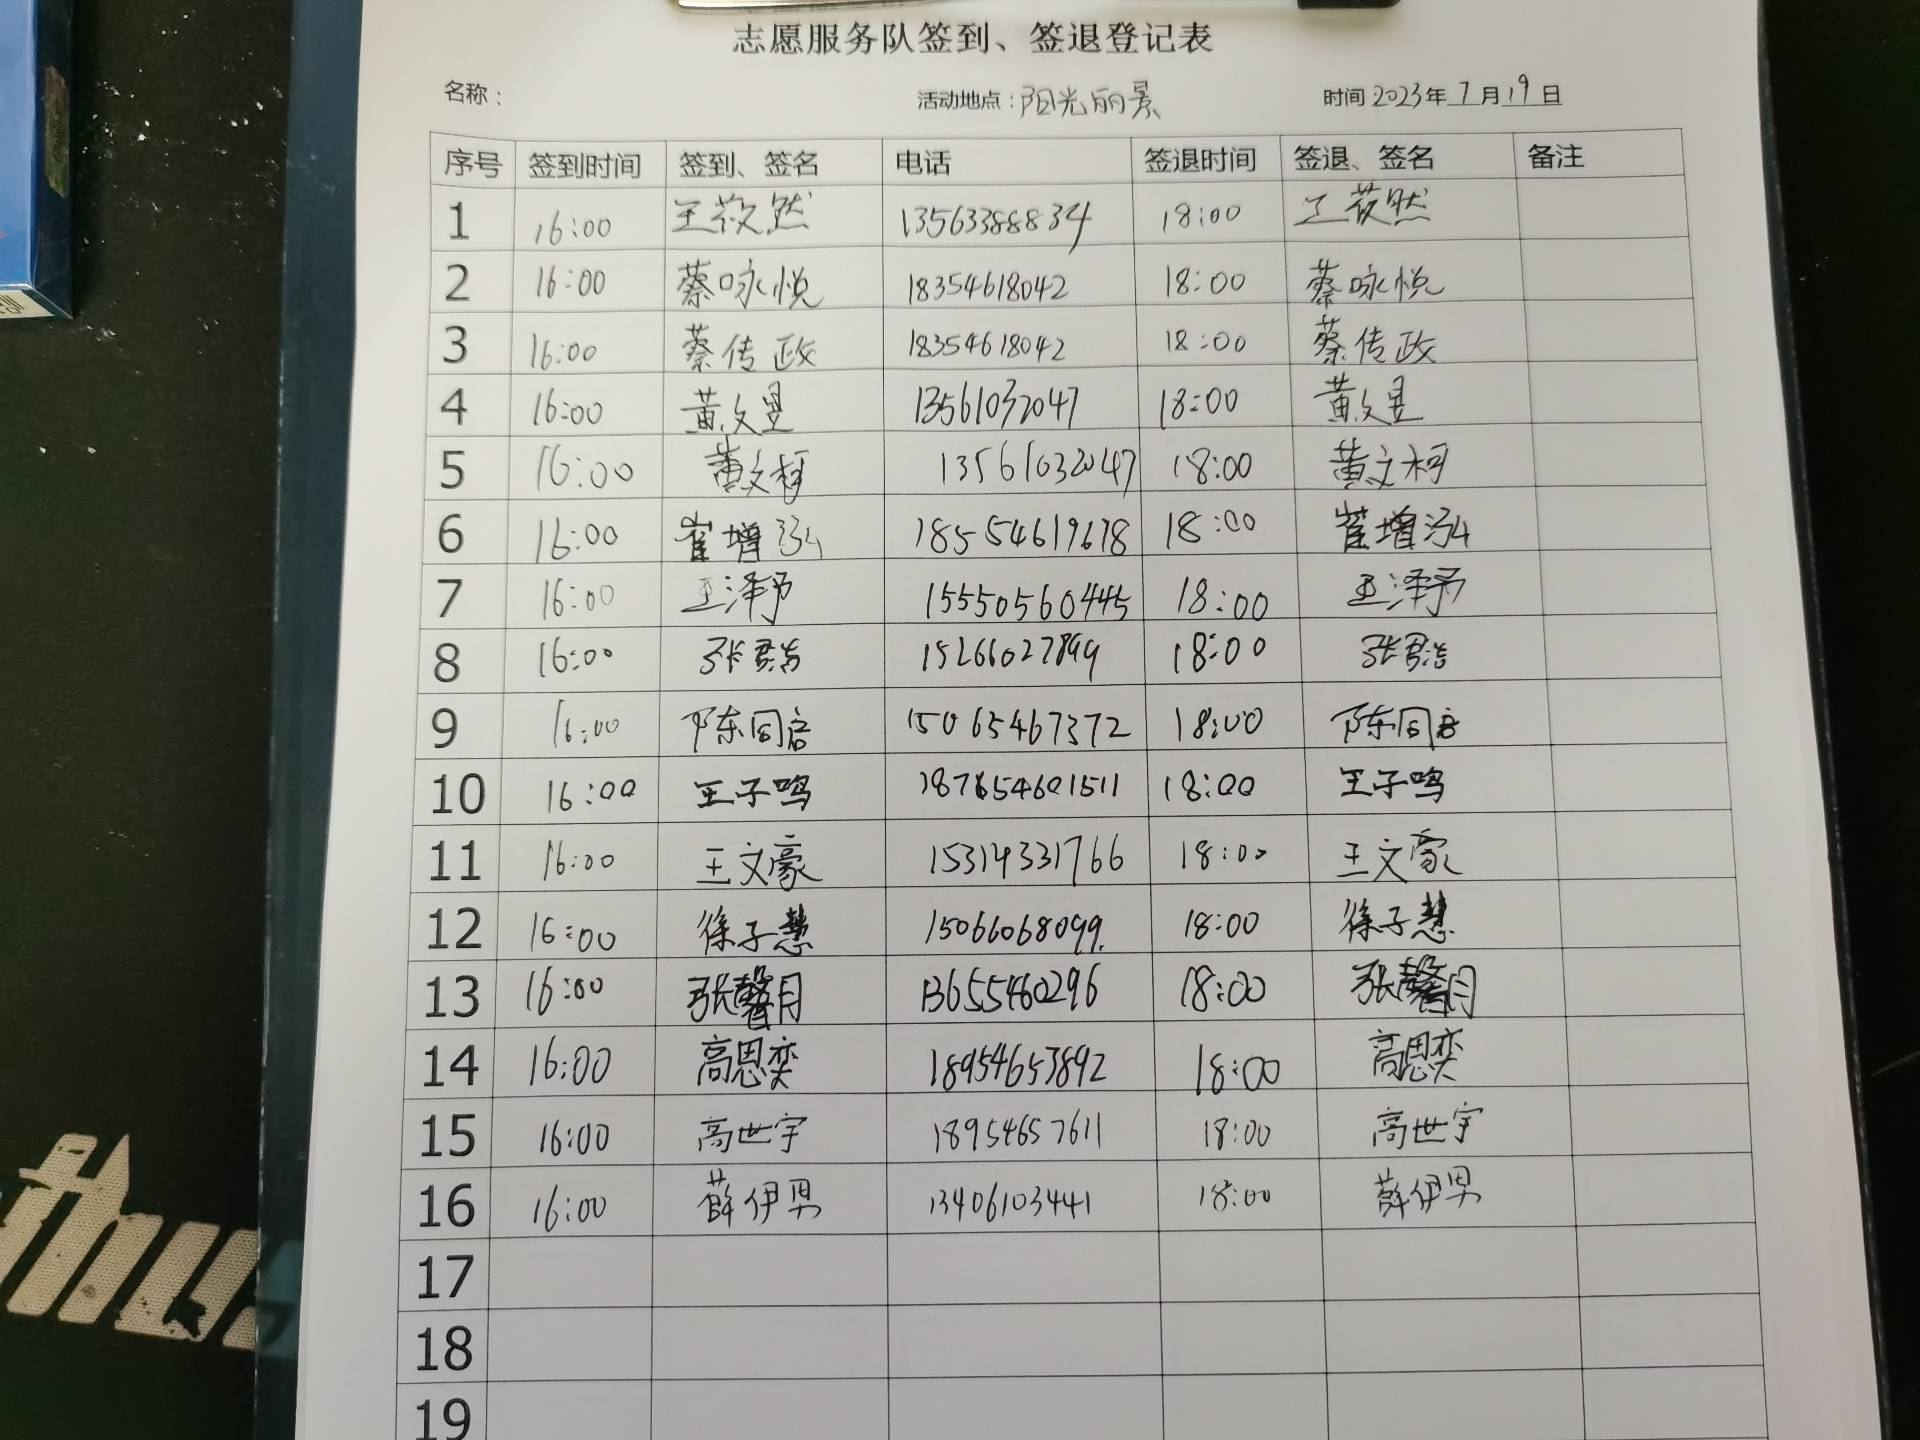 志愿服务队签到、签退登记表
名称： 活动地点：阳光丽景 时间 2023年 7月 19日
序号 签到时间 签到、签名 电话 签退时间 签退、签名 备注
1 16:00 王莜然 13563388834 18:00 王莜然
2 16:00 蔡咏悦 18354618042 18:00 蔡咏悦
3 16:00 蔡传政 18354618042 18:00 蔡传政
4 16:00 黄文昱 13561032047 18:00 黄文昱
5 16:00 黄文柯 13561032047 18:00 黄文柯
6 16:00 崔增泓 18554619678 18:00 崔增泓
7 16:00 王泽予 15550560445 18:00 王泽予
8 16:00 张君浩 15266027899 18:00 张君浩
9 16:00 陈同启 15065467372 18:00 陈同启
10 16:00 王子鸣 187654601511 18:00 王子鸣
11 16:00 王文豪 15314331766 18:00 王文豪
12 16:00 徐子慧 15066068099. 18:00 徐子慧
13 16:00 张馨月 13655460296 18:00 张馨月
14 16:00 高思奕 18954653892 18:00 高思奕
15 16:00 高世宇 18954657611 18:00 高世宇
16 16:00 薛伊男 13406103441 18:00 薛伊男
17
18
19